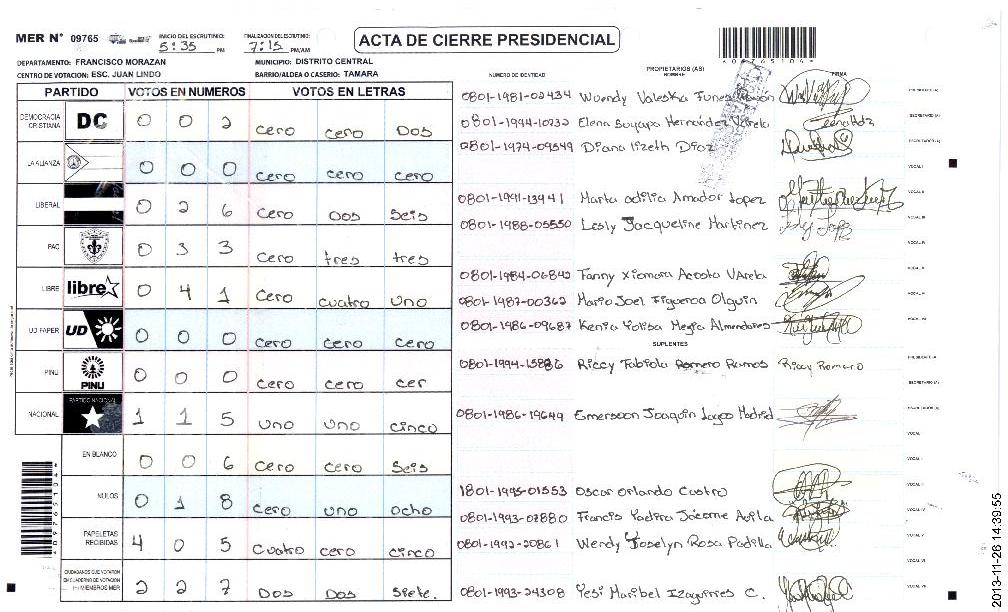 MER N° 09765
INICIO DEL ESCRUTINIO: 5:35 PM
FINALIZACION DEL ESCRUTINIO: 7:15 PM/AM
ACTA DE CIERRE PRESIDENCIAL
DEPARTAMENTO: FRANCISCO MORAZAN
MUNICIPIO: DISTRITO CENTRAL
CENTRO DE VOTACION: ESC. JUAN LINDO
BARRIO/ALDEA O CASERIO: TAMARA
PARTIDO VOTOS EN NUMEROS VOTOS EN LETRAS
DEMOCRACIA CRISTIANA DC 0 0 2 cero cero Dos
LA ALIANZA 0 0 0 cero cero cero
LIBERAL 0 2 6 cero Dos Seis
PAC 0 3 3 cero tres tres
LIBRE libre 0 4 1 cero cuatro uno
UD FAPER UD 0 0 0 cero cero cero
PINU PINU 0 0 0 cero cero cer
NACIONAL PARTIDO NACIONAL 1 1 5 uno uno cinco
EN BLANCO 0 0 6 cero cero Seis
NULOS 0 1 8 cero uno ocho
PAPELETAS RECIBIDAS 4 0 5 cuatro cero cinco
CIUDADANOS QUE VOTARON EN CUADERNO DE VOTACION (+) MIEMBROS MER 2 2 7 Dos Dos Siete.
NUMERO DE IDENTIDAD PROPIETARIOS (AS) NOMBRE FIRMA
0801-1981-02434 Wuendy Valeska Funes
0801-1994-10732 Elena Suyapa Hernández Varela
0801-1974-09549 Diana lizeth Díaz
0801-1991-13941 Marta odilia Amador Lopez
0801-1988-05550 Lesly Jacqueline Martinez
0801-1984-06840 Fanny Xiomara Acosta Varela
0801-1987-00362 Mario Joel Figueroa Olguin
0801-1986-09687 Kenia Yolisa Megia Almendares
SUPLENTES
0801-1994-15886 Riccy Fabiola Romero Ramos Riccy Romero
0801-1986-19649 Emerson Joaquin Lagos Madrid
1801-1995-01553 Oscar Orlando Castro
0801-1993-07880 Francis Yadira Jácome Avila
0801-1992-20861 Wendy Joselyn Rosa Padilla
0801-1993-24308 Yesi Maribel Izaguirres C.
2013-11-26 14:39:55